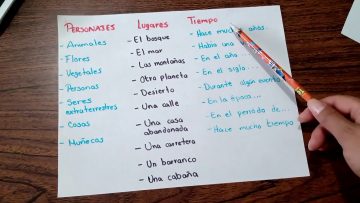 PERSONAJES
- Animales
- Flores
- Vegetales
- Personas
- Seres
extraterrestres
- Cosas
- Muñecas
Lugares
- El bosque
- El mar
- Las montañas
- Otro planeta
- Desierto
- Una calle
- Una casa
abandonada
- Una carretera
- Un barranco
- Una cabaña
Tiempo
- Hace muchos años.
- Había una
- En el año
- En el siglo...
- Durante algún
- En la época....
- En el período de...
- Hace mucho tiempo